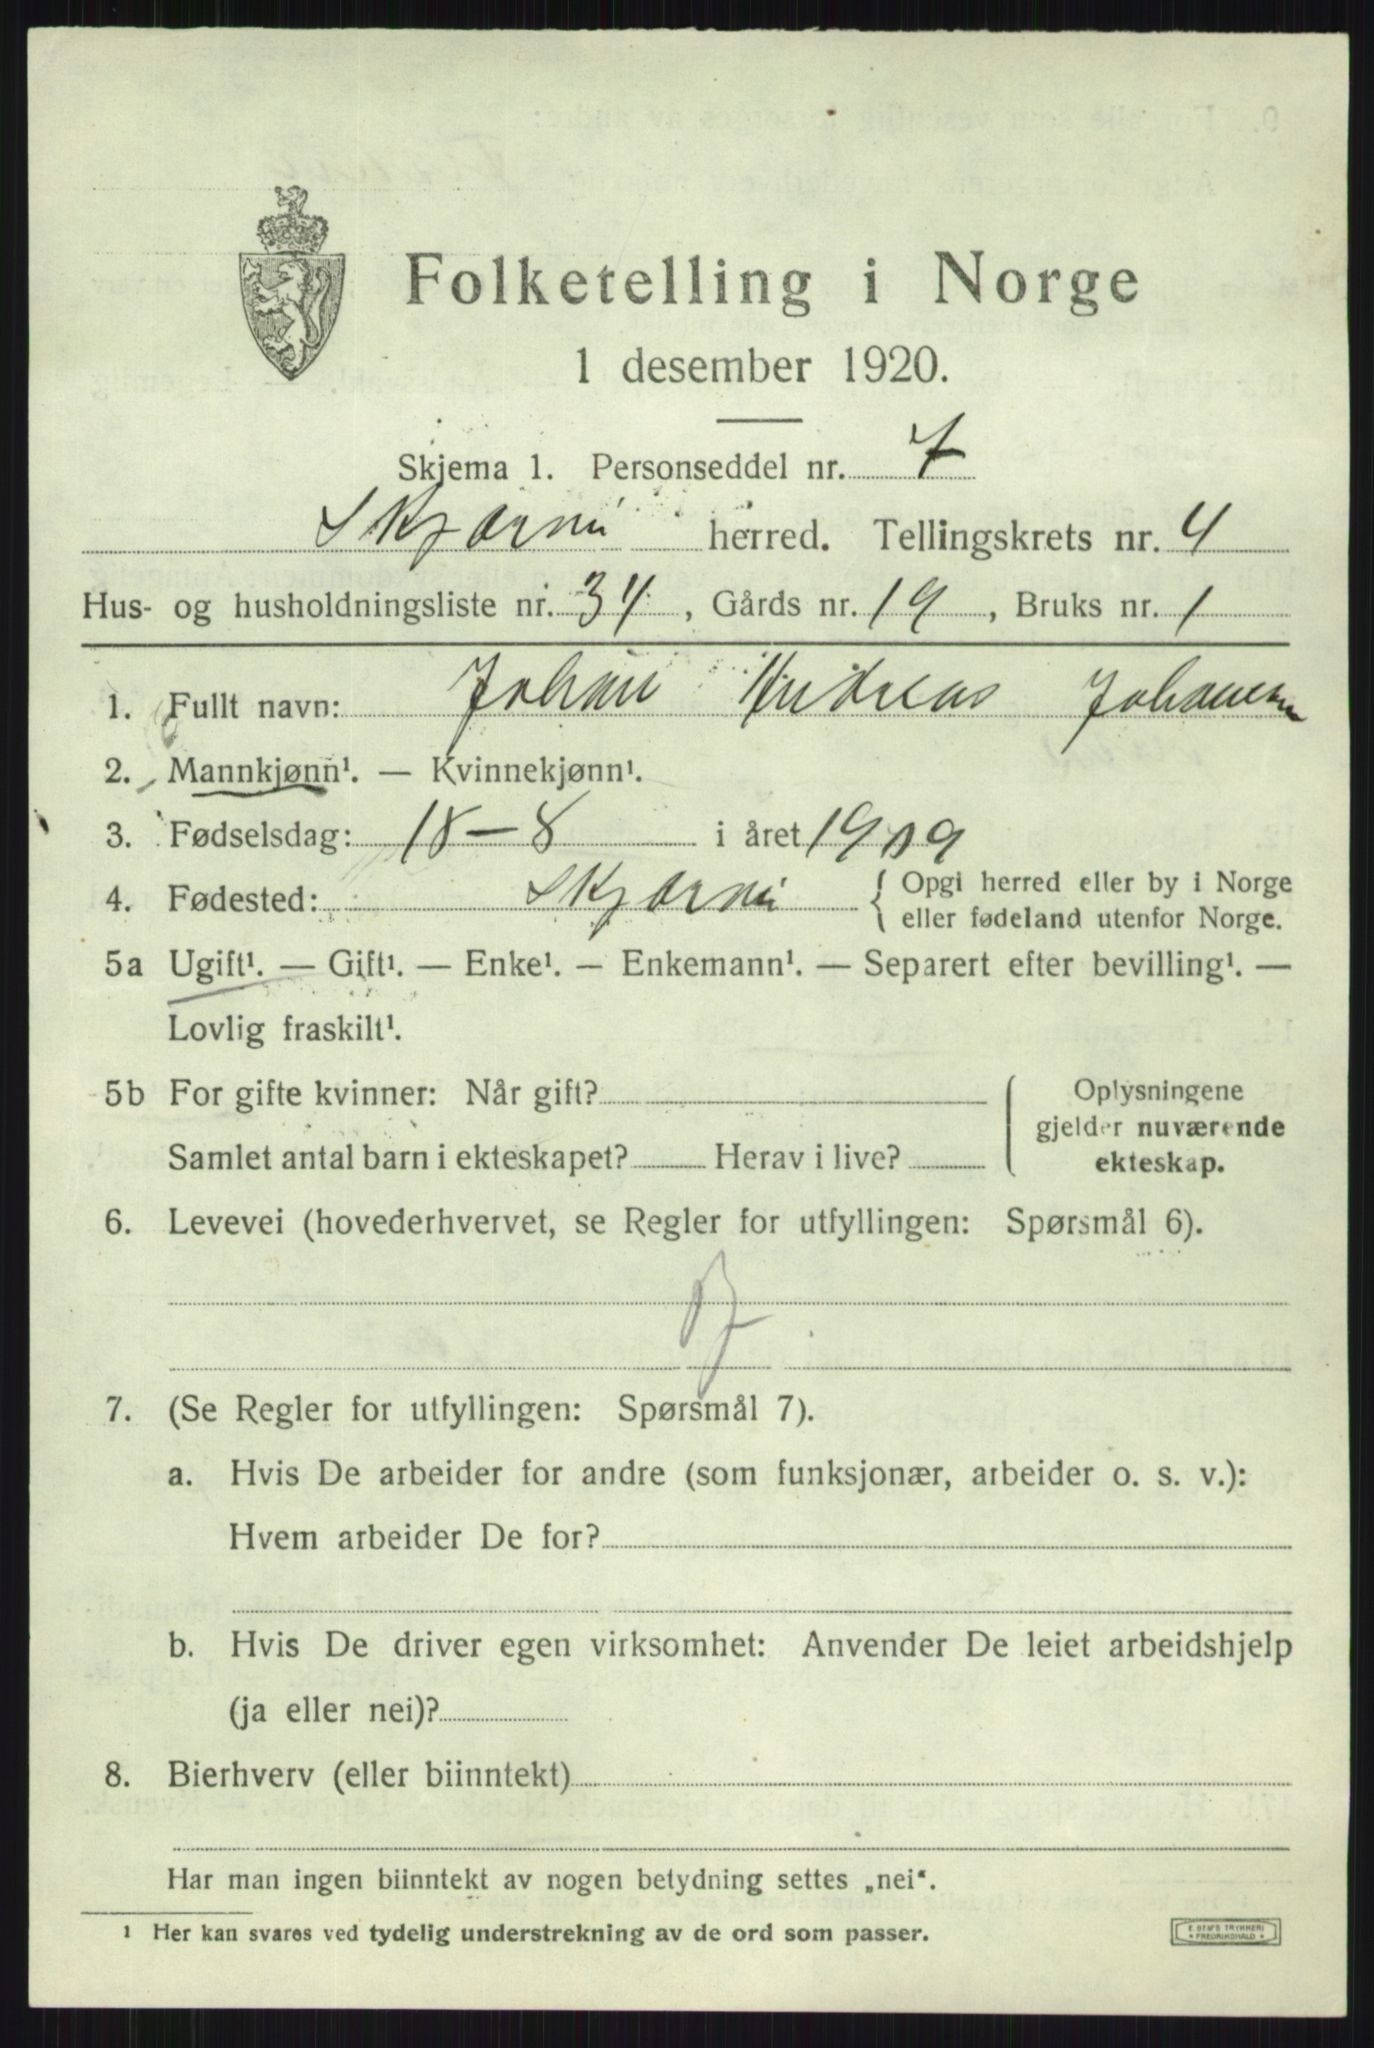 Folketelling i Norge
1 desember 1920.
Skjema 1. Personseddel nr. 7
Skjærnø herred. Tellingskrets nr. 4
Hus- og husholdningsliste nr. 34, Gårds nr. 19, Bruks nr. 1
1. Fullt navn: Johan Andreas Johansen
2. Mannkjønn¹. — Kvinnekjønn¹.
3. Fødselsdag: 18-8 i året 1909
4. Fødested: Skjærnø { Opgi herred eller by i Norge
eller fødeland utenfor Norge.
5a Ugift¹. — Gift¹. — Enke¹. — Enkemann¹. — Separert efter bevilling¹. —
Lovlig fraskilt¹.
5b For gifte kvinner: Når gift? Oplysningene
gjelder nuværende
Samlet antal barn i ekteskapet? Herav i live? ekteskap.
6. Levevei (hovederhvervet, se Regler for utfyllingen: Spørsmål 6).
7. (Se Regler for utfyllingen: Spørsmål 7).
a. Hvis De arbeider for andre (som funksjonær, arbeider o. s. v.):
Hvem arbeider De for?
b. Hvis De driver egen virksomhet: Anvender De leiet arbeidshjelp
(ja eller nei)?
8. Bierhverv (eller biinntekt)
Har man ingen biinntekt av nogen betydning settes „nei“.
¹ Her kan svares ved tydelig understrekning av de ord som passer.
E. SEM'S TRYKKERI
FREDRIKSHALD